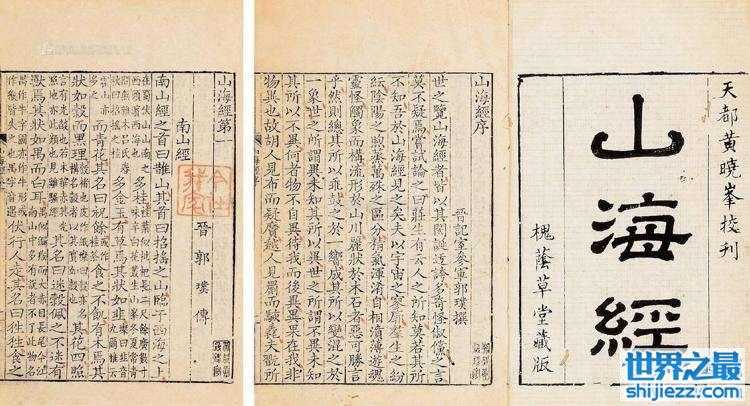 天都黃曉峯校刊
山海經
槐蔭草堂藏版
山海經序
晉記室參軍郭璞撰
世之覽山海經者皆以其閎誕迂誇多奇怪俶儻之言
莫不疑焉嘗試論之曰莊生有云人之所知莫若其所
不知吾於山海經見之矣夫以宇宙之寥廓羣生之紛
紜陰陽之煦蒸萬殊之區分精氣渾淆自相濆薄遊魂
靈怪觸象而構流形於山川麗狀於木石者惡可勝言
乎然則總其所以乖鼓之於一響成其所以變混之於
一象世之所謂異未知其所以異世之所謂不異未知
其所以不異何者物不自異待我而後異異果在我非
物異也故胡人見布而疑黂越人見罽而駭毳夫翫所
山海經第一
晉 郭璞傳
南山經
南山經之首曰䧿山其首曰招搖之山臨于西海之上
在蜀伏山山南之西頭濱西海也 多桂 桂葉似枇杷長二尺餘廣數寸味辛白花叢生山峯冬夏常青
間無雜木呂氏春秋曰招搖之桂 多金玉有草焉其狀如韭
而青花其名曰祝餘 食之不飢有木焉其
狀如榖而黑理 其花四照
其名曰迷榖佩之不迷有
獸焉其狀如禺而白耳
伏行人走其名曰狌狌食之
世界之最
shijiezz.com